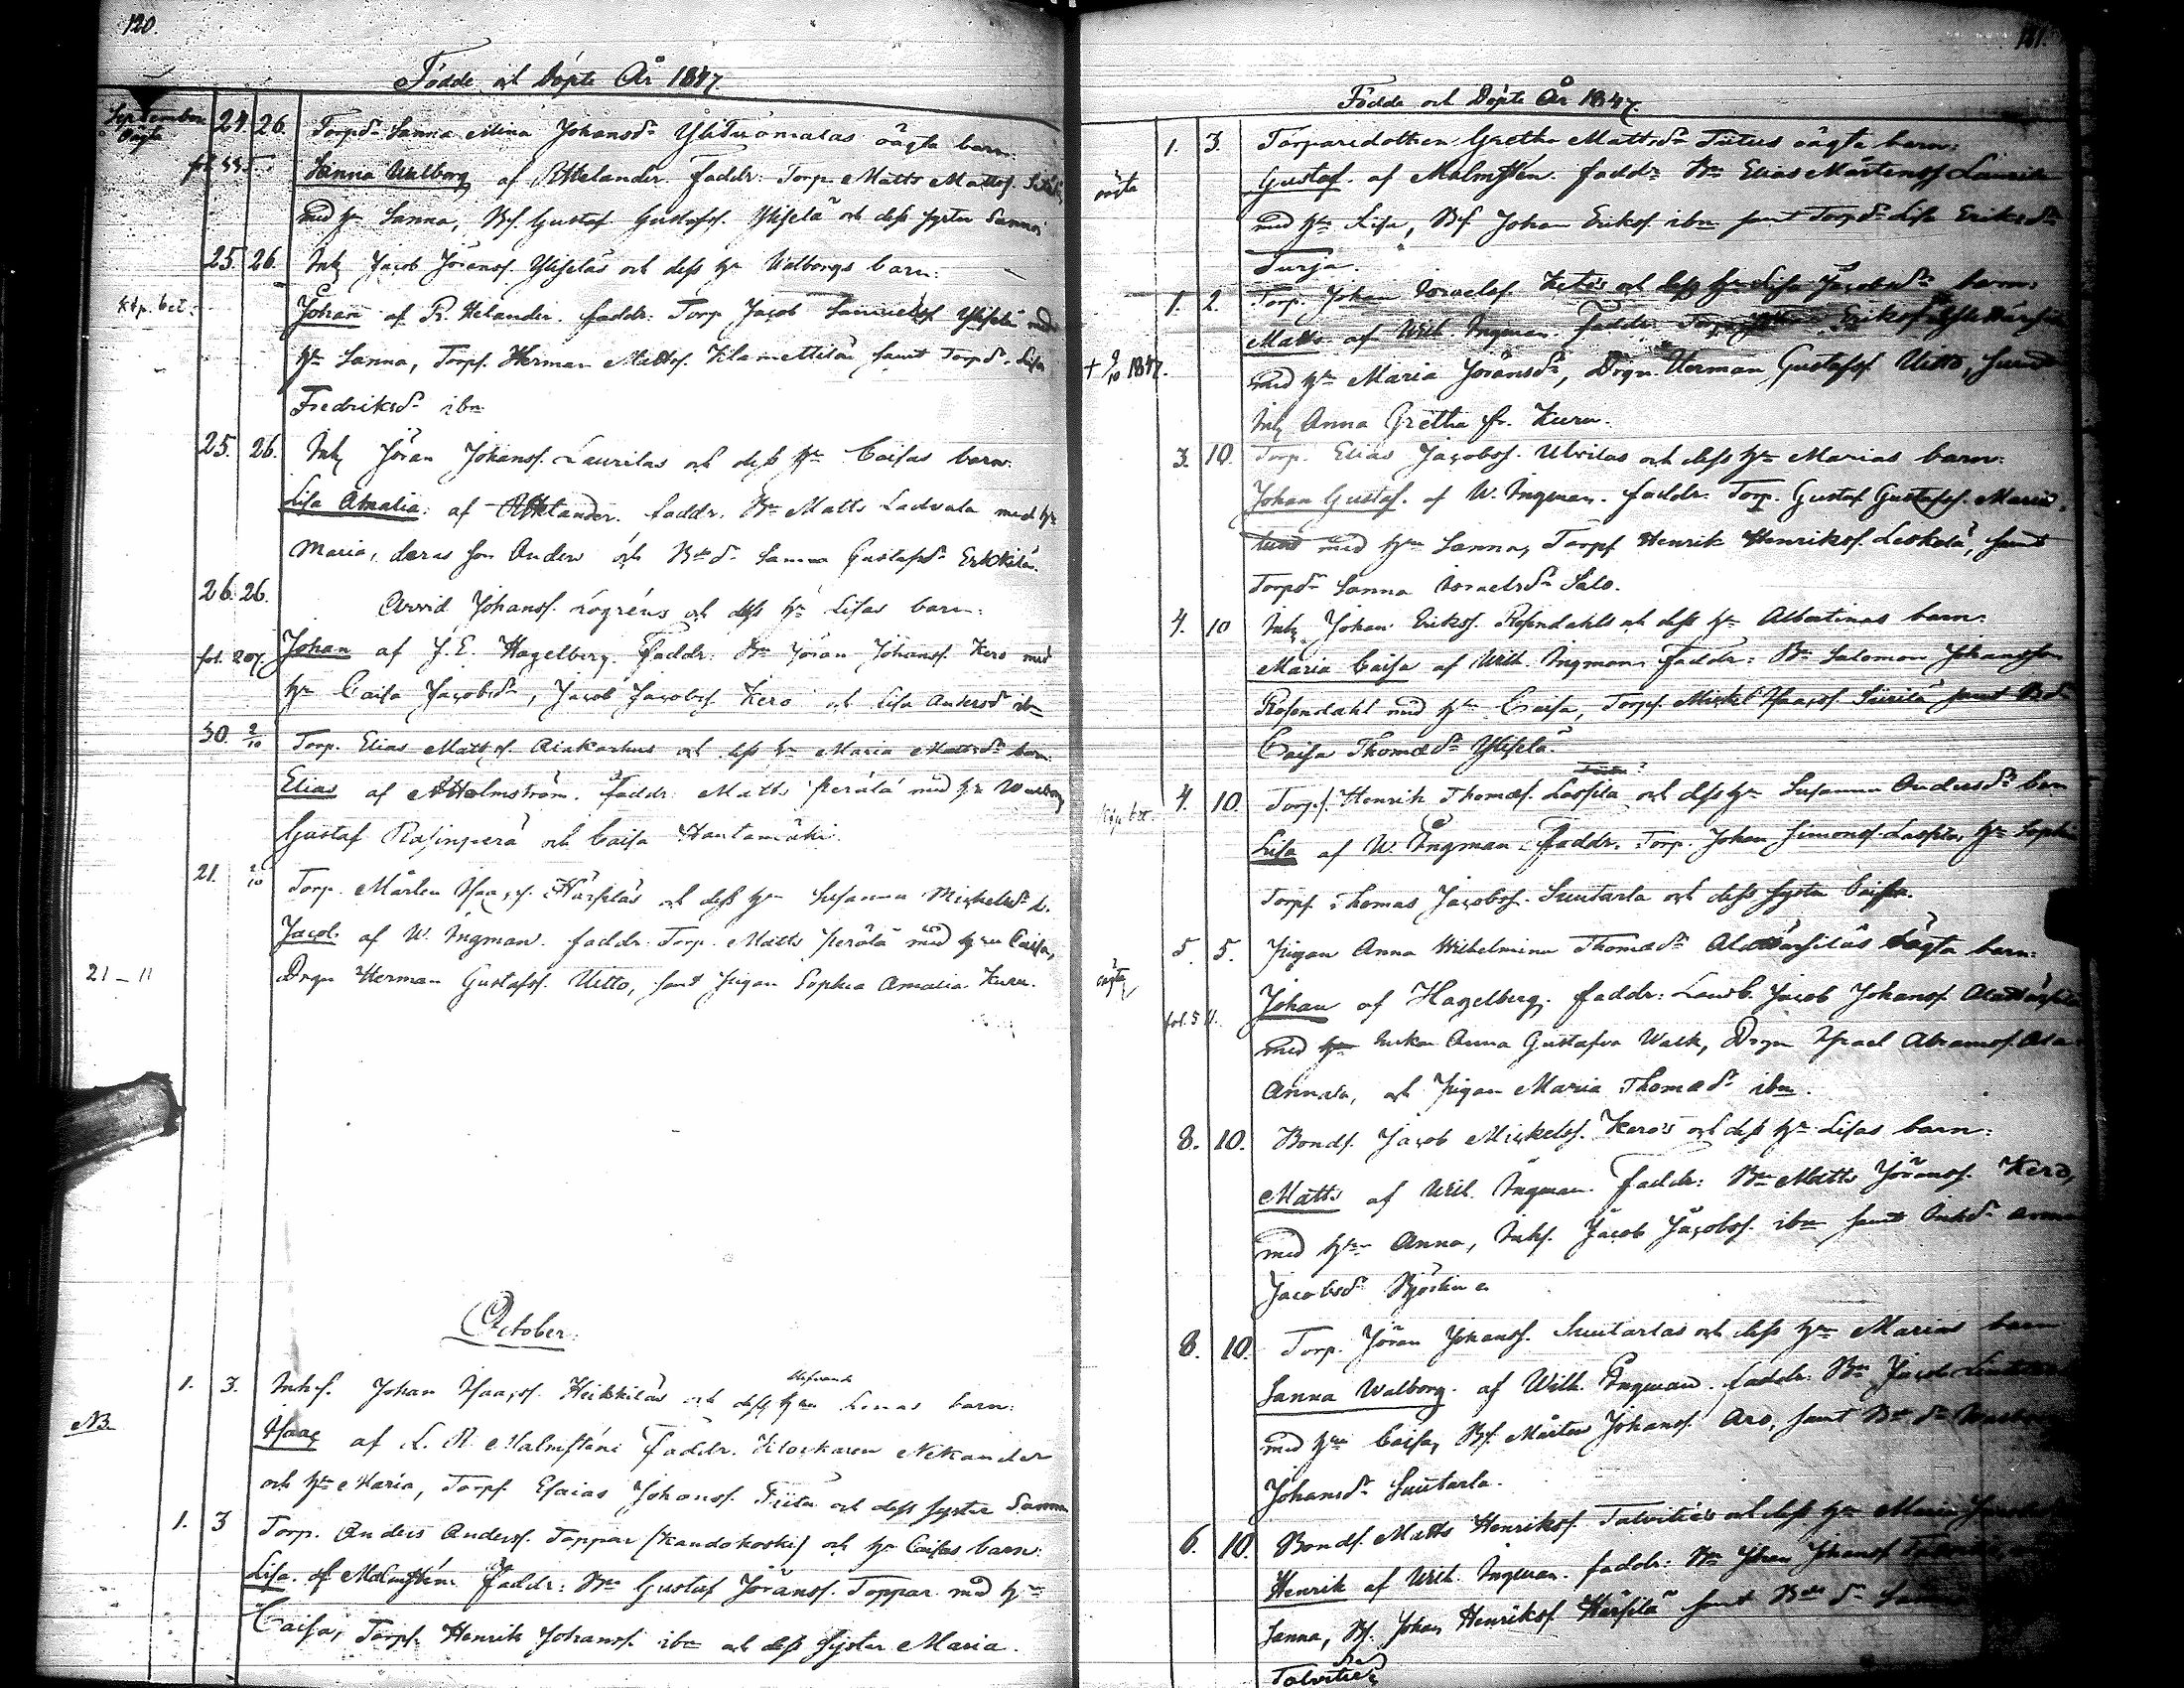 120.
Födde och Döpte År 1847.
September
oägta
24. 26. Torpd. Sanna Mina Johansdr YliTuomalas oägta barn:
Sanna Walborg af R Helander. Faddr: Torp. Matts Mattss.
med hr Sanna, Bs. Gustaf Gustafss. Ylisela och dess syster Sanna
25. 26. Inh Jacob Jöranss. Yliseläs och dess hr Walborgs barn:
Johan af R. Helander. faddr: Torp Jacob Samuelss Ylisela med
hr Sanna, Torps. Herman Mattss. samt Torpdr Lisa
Fredriksdr ibm
25. 26. Inh Jöran Johanss. Laurilas och dess hr Caisas barn:
Lisa Amalia: af RHelander. faddr. Bn Matts Ladvala med hr
Maria, deras son Anders och Bdedr Sanna Gustafsdr Erkkilä.
26. 26. Arvid Johanss. Logréns och dess hr Lisas barn:
fol. 207. Johan af J. E. Hagelberg. Faddr: Bn Jöran Johanss. Kero med
hr Caisa Jacobsdr, Jacob Jacobss Kero och Lisa Andersd ibm
30. 2/10 Torp. Elias Mattss. och dess hr Maria Mattsdr barn
Elias af AHolmström. Faddr: Matts Perälä med hr Walborg
Gustaf och Caisa Hautamäki.
21. 2/10 Torp. Mårten Isaacs. Härsiläs och dess hr Susanna Michelsdr b.
Jacob. af W. Ingman. faddr. Torp. Matts Perälä med hru Caisa,
21 - 11 Drgn Herman Gustafss. Uitto, samt pigan Sophia Amalia Kuru.
October.
1. 3. Inhs. Johan Isaacss. Heikkiläs och dess hru Lenas barn:
NB. Isaac af L. R. Malmsténi Faddr. Klockaren Nikander
och hr Maria, Torps. Esaias Johanss. Tiitu och dess syster Sanna
1. 3 Torp. Anders Anderss. Toppar (Kandokoski) och hr Caisas barn:
Lisa. af Malmstén. Faddr: Bn Gustaf Jöranss. Toppar med hr
Caisa, Torps. Henrik Johanss. ibm och dess syster Maria.
121.
Födde och Döpte År 1847.
1. 3. Torparedottren Gretha Mattsdr Tiitus oägta barn:
oägta Gustaf. af Malmstén. faddr Bn Elias Mårtenss Laurila
med hr Lisa, Bs Johan Erikss. ibm samt Torpdr Lisa Eriksdr
Surja.
1. 2. Torp. Johan Israelss. och dess hr Lisa Jacobsdr barn:
Matts af Wilh. Ingman. Faddr: Erikss
+ 9/10 1847. med hr Maria Jöransdr, Drgn. Herman Gustafss. Uitto, samt
Inh Anna Gretha fr. Kuru.
3. 10. Torp. Elias Jacobss. Ulvilas och dess hr Marias barn:
Johan Gustaf. af W. Ingman. faddr. Torp. Gustaf Gustafss. Marie-
lund med hr Sanna, Torps Henrik Henrikss. Leskelä, samt
Torpdr Sanna Israelsdr Salo.
4. 10 Inh Johan Erikss. Rosendahls och dess hr Albertinas barn:
Maria Caisa af Wilh. Ingman. Faddr: Bn Salomon Johansson
Rosendahl med hr Caisa, Torps. Michel Isaacss. Siirilä samt Bdr
Caisa Thomædr Ylisela.
4. 10. Torps. Henrik Thomæs. Lassila och dess hr Susanna Andersdr barn
Lisa af W. Ingman. Faddr. Torp. Johan Simonss. Lassila, hr Sophia
Torps. Thomas Jacobss. Suutarla och dess syster Caisa.
5. 5. Pigan Anna Wilhelmina Thomædr AlaHärsiläs oägta barn:
oägta
Johan af Hagelberg. faddr: Landb. Jacob Johanss. AlaHärsilä
med Enkan Anna Gustafva Walk, Drgn Israel Abramss. Ala
Annala, och Pigan Maria Thomædr ibm.
8. 10. Bonds. Jacob Mickelss. Kero's och dess hr Lisas barn:
Matts af Wil. Ingman. Faddr: Bn Matts Jöranss. Kero,
med hr Anna, Inhs. Jacob Jacobss. ibm samt Inhdr Anna
Jacobsdr
8. 10. Torp. Jöran Johanss. Suutarlas och dess hr Marias barn
Sanna Walborg. af Wilh. Ingman. faddr. Bn Jacob
med hr Caisa, Bs. Mårten Johanss. Aro, samt Bdedr Walborg
Johansdr Suutarla.
6. 10. Bonds. Matts Henrikss. Talvitie's och dess hr Maria
Henrik af Wilh. Ingman. faddr: Bn Johan Johanss
Sanna, Bs. Johan Henrikss. Härsilä samt Bdedr
Talvitie